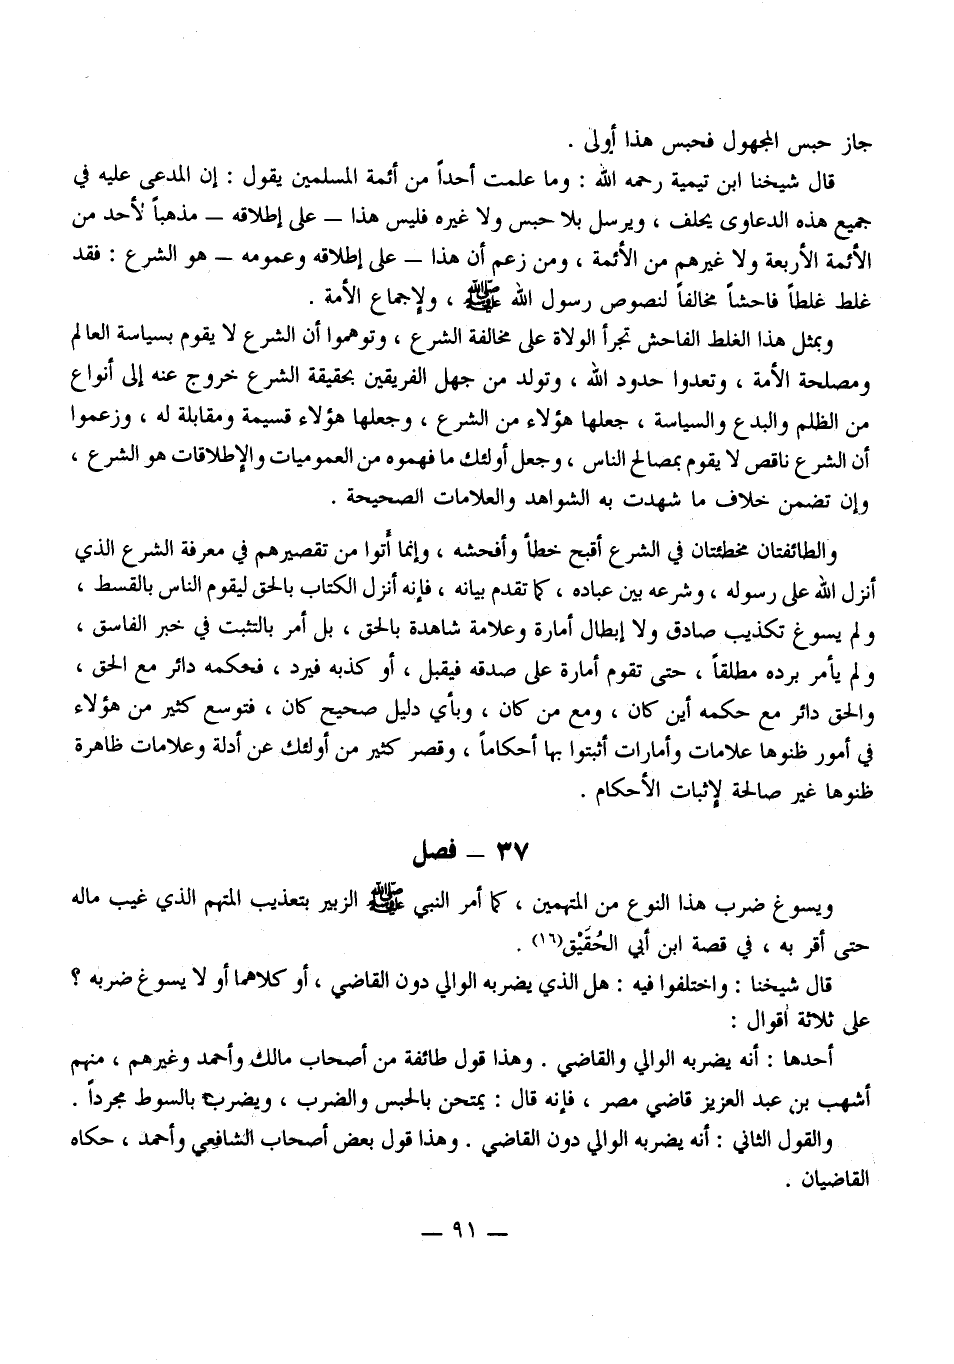 جاز حبس المجهول فحبس هذا أولى .
قال شيخنا ابن تيمية رحمه الله : وما علمت أحداً من أئمة المسلمين يقول : إن المدعى عليه في
جميع هذه الدعاوى يحلف ، ويرسل بلا حبس ولا غيره فليس هذا – على إطلاقه – مذهباً لأحد من
الأئمة الأربعة ولا غيرهم من الأئمة ، ومن زعم أن هذا – على إطلاقه وعمومه – هو الشرع : فقد
غلط غلطاً فاحشاً مخالفاً لنصوص رسول الله ﷺ ، ولإجماع الأمة .
وبمثل هذا الغلط الفاحش تجرأ الولاة على مخالفة الشرع ، وتوهموا أن الشرع لا يقوم بسياسة العالم
ومصلحة الأمة ، وتعدوا حدود الله ، وتولد من جهل الفريقين بحقيقة الشرع خروج عنه إلى أنواع
من الظلم والبدع والسياسة ، جعلها هؤلاء من الشرع ، وجعلها هؤلاء قسيمة ومقابلة له ، وزعموا
أن الشرع ناقص لا يقوم بمصالح الناس ، وجعل أولئك ما فهموه من العموميات والإطلاقات هو الشرع ،
وإن تضمن خلاف ما شهدت به الشواهد والعلامات الصحيحة .
والطائفتان مخطئتان في الشرع أقبح خطأ وأفحشه ، وإنما أُتوا من تقصيرهم في معرفة الشرع الذي
أنزل الله على رسوله ، وشرعه بين عباده ، كما تقدم بيانه ، فإنه أنزل الكتاب بالحق ليقوم الناس بالقسط ،
ولم يسوغ تكذيب صادق ولا إبطال أمارة وعلامة شاهدة بالحق ، بل أمر بالتثبت في خبر الفاسق ،
ولم يأمر برده مطلقاً ، حتى تقوم أمارة على صدقه فيقبل ، أو كذبه فيرد ، فحكمه دائر مع الحق ،
والحق دائر مع حكمه أين كان ، ومع من كان ، وبأي دليل صحيح كان ، فتوسع كثير من هؤلاء
في أمور ظنوها علامات وأمارات أثبتوا بها أحكاماً ، وقصر كثير من أولئك عن أدلة وعلامات ظاهرة
ظنوها غير صالحة لإثبات الأحكام .
٣٧ – فصل
ويسوغ ضرب هذا النوع من المتهمين ، كما أمر النبي ﷺ الزبير بتعذيب المتهم الذي غيب ماله
حتى أقر به ، في قصة ابن أبي الحُقَيْق(١٦) .
قال شيخنا : واختلفوا فيه : هل الذي يضربه الوالي دون القاضي ، أو كلاهما أو لا يسوغ ضربه ؟
على ثلاثة أقوال :
أحدها : أنه يضربه الوالي والقاضي . وهذا قول طائفة من أصحاب مالك وأحمد وغيرهم ، منهم
أشهب بن عبد العزيز قاضي مصر ، فإنه قال : يمتحن بالحبس والضرب ، ويضرب بالسوط مجرداً .
والقول الثاني : أنه يضربه الوالي دون القاضي . وهذا قول بعض أصحاب الشافعي وأحمد ، حكاه
القاضيان .
– ٩١ –